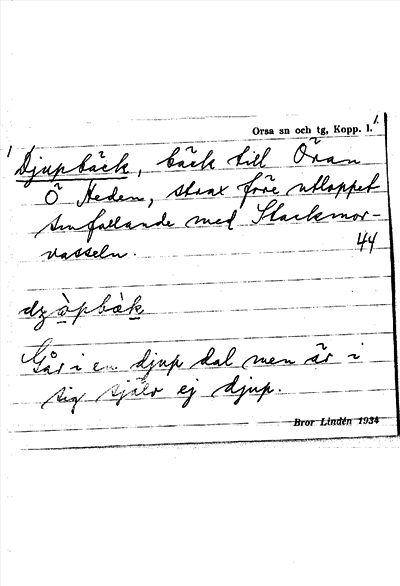 Orsa sn och tg, Kopp. l.
Djupbäck, bäck till Öran
Ö Heden, strax före utloppet
smfallande med Stackmor-
vasseln. 44
dz òpbàk
Går i en djup dal men är i
sig själv ej djup.
Bror Lindén 1934